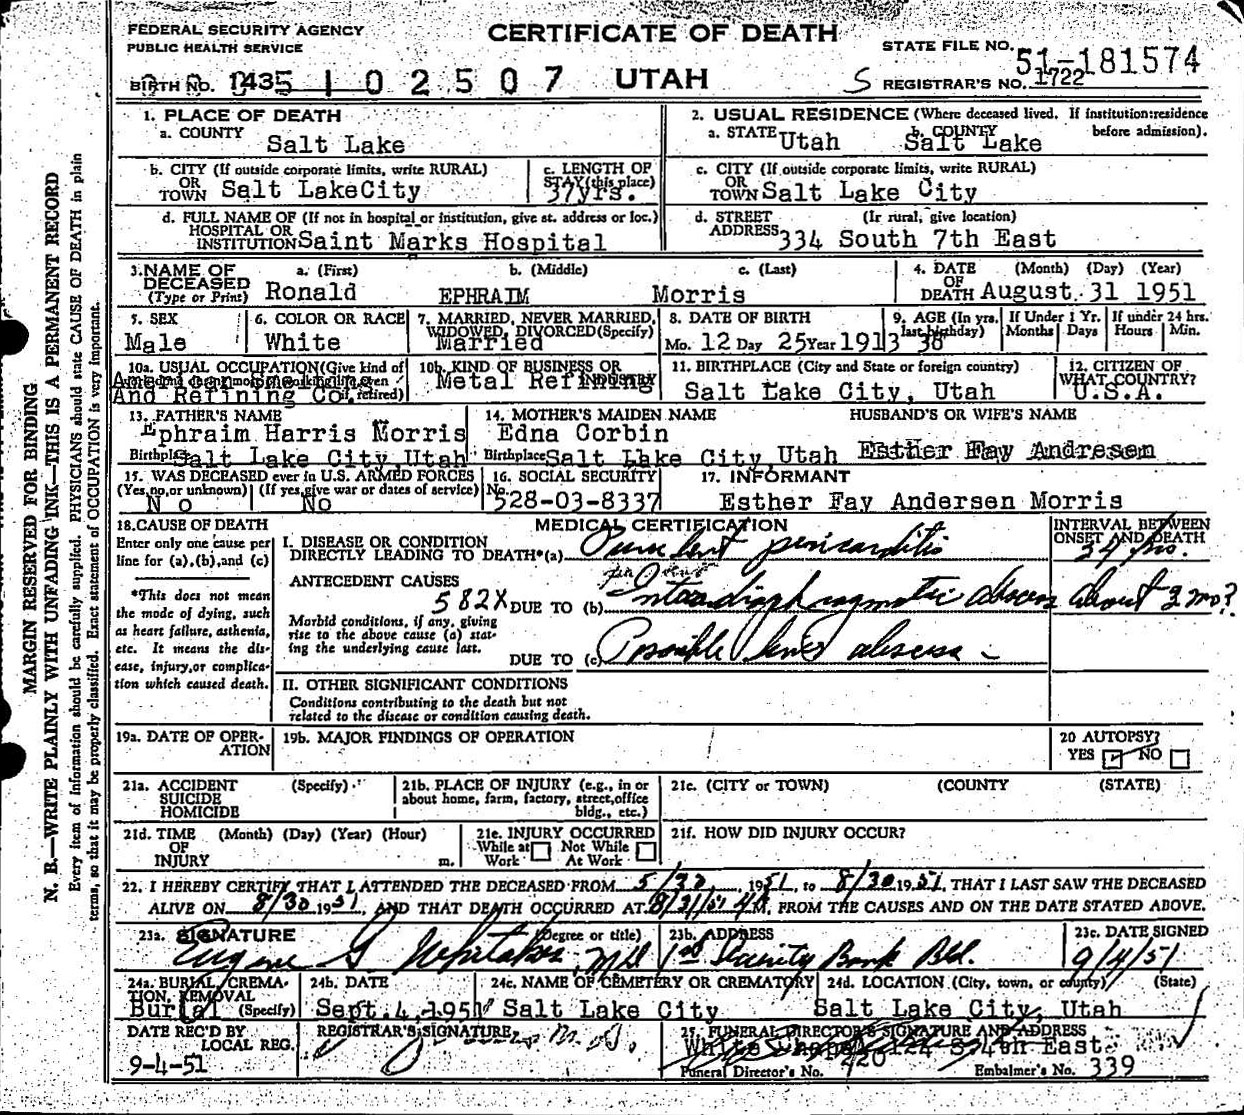 FEDERAL SECURITY AGENCY
PUBLIC HEALTH SERVICE
CERTIFICATE OF DEATH
STATE FILE NO. 51-181574
BIRTH NO. 1435 102507 UTAH S REGISTRAR'S NO. 1722
MARGIN RESERVED FOR BINDING
N. B.—WRITE PLAINLY WITH UNFADING INK—THIS IS A PERMANENT RECORD
Every item of information should be carefully supplied. PHYSICIANS should state CAUSE OF DEATH in plain
terms, so that it may be properly classified. Exact statement of OCCUPATION is very important.
1. PLACE OF DEATH
a. COUNTY Salt Lake
2. USUAL RESIDENCE (Where deceased lived. If institution: residence before admission).
a. STATE Utah b. COUNTY Salt Lake
b. CITY (If outside corporate limits, write RURAL) OR TOWN Salt LakeCity
c. LENGTH OF STAY (this place) 37yrs.
c. CITY (If outside corporate limits, write RURAL) OR TOWN Salt Lake City
d. FULL NAME OF (If not in hospital or institution, give st. address or loc.) HOSPITAL OR INSTITUTION Saint Marks Hospital
d. STREET ADDRESS (If rural, give location) 334 South 7th East
3. NAME OF DECEASED (Type or Print) a. (First) Ronald b. (Middle) EPHRAIM c. (Last) Morris
4. DATE OF DEATH (Month) (Day) (Year) August 31 1951
5. SEX Male
6. COLOR OR RACE White
7. MARRIED, NEVER MARRIED, WIDOWED, DIVORCED (Specify) Married
8. DATE OF BIRTH Mo. 12 Day 25 Year 1913
9. AGE (In yrs. last birthday) 38 If Under 1 Yr. Months Days If under 24 hrs. Hours Min.
10a. USUAL OCCUPATION (Give kind of work done during most of working life, even if retired) American Smelting And Refining Co.
10b. KIND OF BUSINESS OR INDUSTRY Metal Refining
11. BIRTHPLACE (City and State or foreign country) Salt Lake City, Utah
12. CITIZEN OF WHAT COUNTRY? U.S.A.
13. FATHER'S NAME Ephraim Harris Morris
Birthplace Salt Lake City, Utah
14. MOTHER'S MAIDEN NAME Edna Corbin
Birthplace Salt Lake City, Utah
HUSBAND'S OR WIFE'S NAME Esther Fay Andresen
15. WAS DECEASED ever in U.S. ARMED FORCES (Yes, no, or unknown) No (If yes, give war or dates of service) No
16. SOCIAL SECURITY No. 528-03-8337
17. INFORMANT Esther Fay Andersen Morris
18. CAUSE OF DEATH
Enter only one cause per line for (a), (b), and (c)
*This does not mean the mode of dying, such as heart failure, asthenia, etc. It means the disease, injury, or complication which caused death.
MEDICAL CERTIFICATION
INTERVAL BETWEEN ONSET AND DEATH
I. DISEASE OR CONDITION DIRECTLY LEADING TO DEATH* (a) Purulent pericarditis
ANTECEDENT CAUSES 582X
Morbid conditions, if any, giving rise to the above cause (a) stating the underlying cause last.
DUE TO (b) diaphragmatic abscess about 3 mo?
DUE TO (c) Possible liver abscess
II. OTHER SIGNIFICANT CONDITIONS
Conditions contributing to the death but not related to the disease or condition causing death.
19a. DATE OF OPERATION
19b. MAJOR FINDINGS OF OPERATION
20 AUTOPSY? YES NO
21a. ACCIDENT SUICIDE HOMICIDE (Specify)
21b. PLACE OF INJURY (e.g., in or about home, farm, factory, street, office bldg., etc.)
21c. (CITY OR TOWN) (COUNTY) (STATE)
21d. TIME OF INJURY (Month) (Day) (Year) (Hour) m.
21e. INJURY OCCURRED While at Work Not While At Work
21f. HOW DID INJURY OCCUR?
22. I HEREBY CERTIFY THAT I ATTENDED THE DECEASED FROM 5/30, 1951, to 8/30 1951, THAT I LAST SAW THE DECEASED
ALIVE ON 8/30 1951, AND THAT DEATH OCCURRED AT 8/31/51 M, FROM THE CAUSES AND ON THE DATE STATED ABOVE.
23a. SIGNATURE (Degree or title) Eugene G Whitaker, MD
23b. ADDRESS 1st Security Bank Bld.
23c. DATE SIGNED 9/4/51
24a. BURIAL, CREMATION, REMOVAL (Specify) Burial
24b. DATE Sept. 4, 1951
24c. NAME OF CEMETERY OR CREMATORY Salt Lake City
24d. LOCATION (City, town, or county) (State) Salt Lake City, Utah
DATE REC'D BY LOCAL REG. 9-4-51
REGISTRAR'S SIGNATURE
25. FUNERAL DIRECTOR'S SIGNATURE AND ADDRESS White Chapel 124 S. 4th East
Funeral Director's No. 720 Embalmer's No. 339